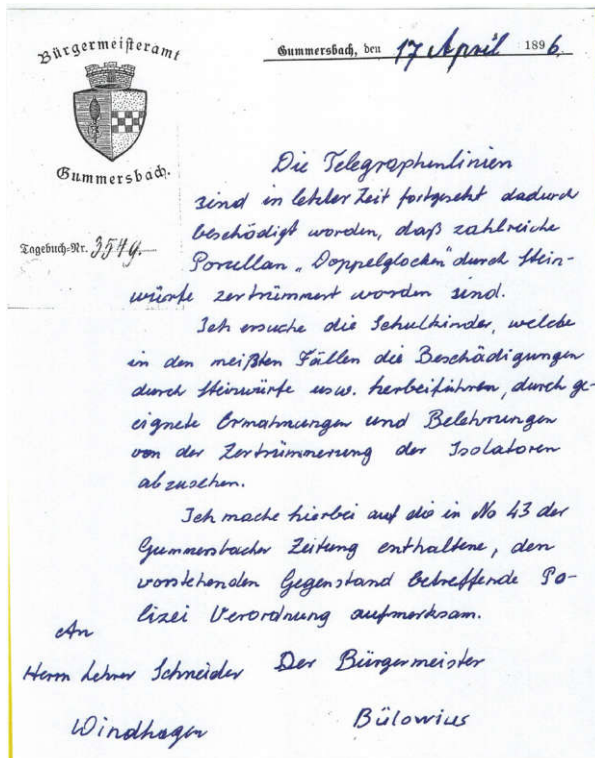 Bürgermeisteramt
Gummersbach, den 17 April 1896.
Gummersbach.
Die Telegraphenlinien
sind in letzter Zeit fortgesetzt dadurch
beschödigt worden, daß zahlreiche
Tagebuch-Nr. 3549.
Porcellan „Doppelglocken" durch Stein-
würfe zertrümmert worden sind.
Ich ersuche die Schulkinder, welche
in den meißten Fällen die Beschädigungen
durch Steinwürfe usw. herbeiführen, durch ge-
eignete Ermahnungen und Belehrungen
von der Zertrümmerung der Isolatoren
abzusehen.
Ich mache hierbei auf die in No 43 der
Gummersbacher Zeitung enthaltene, den
vorstehenden Gegenstand betreffende Po-
lizei Verordnung aufmerksam.
An
Herrn Lehrer Schneider Der Bürgermeister
Windhagen Bülowius